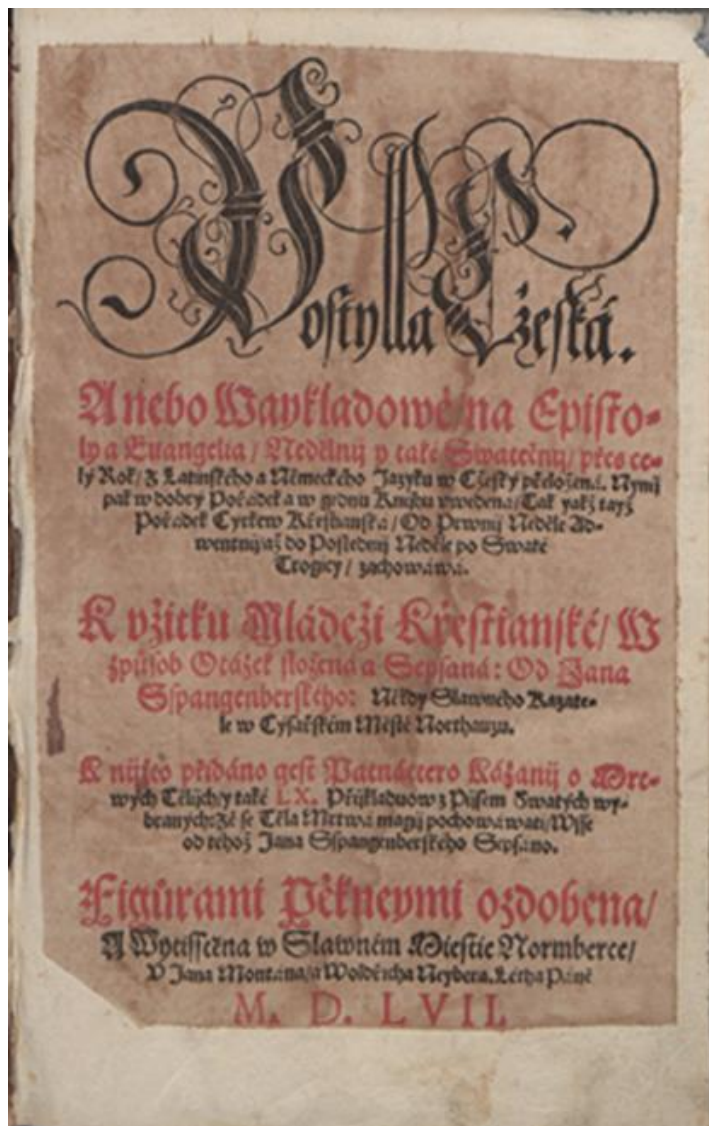 Postylla Cžeská.
Anebo Waykladowé na Episto-
ly a Euangelia/ Nedělnij y také Swátečnij/ přes ce-
lý Rok/ z Latinského a Německého Jazyku w Cžeský přeložená. Nynij
pak w dobrý Pořádek a w gednu Knijhu vwedena/ Tak yakž tayž
Pořádek Cyrkew Křestianská/ Od Prwnij Neděle Ad-
wentnij až do Poslednij Neděle po Swaté
Trogicy/ zachowáwá.
K vžitku Mládeži Křestianské/ W
způsob Otázek složená a Sepsaná: Od Jana
Sspangenberského: Někdy Slawného Kazate-
le w Cysařském Městě Northauzu.
K nijžto přidáno gest Patnáctero Kázanij o Mrt-
wých Tělijch/ y také LX. Přijkladuow z Pijsem Swatých wy-
braných: Že se Těla Mrtwá magij pochowáwati/ Wsse
od tehož Jana Sspangenberského Sepsáno.
Figůrami Pěkneymi ozdobena/
A Wytisstěna w Slawném Miestie Normberce/
V Jana Montána/ a Woldřicha Neybera. Létha Páně
M. D. LVII.